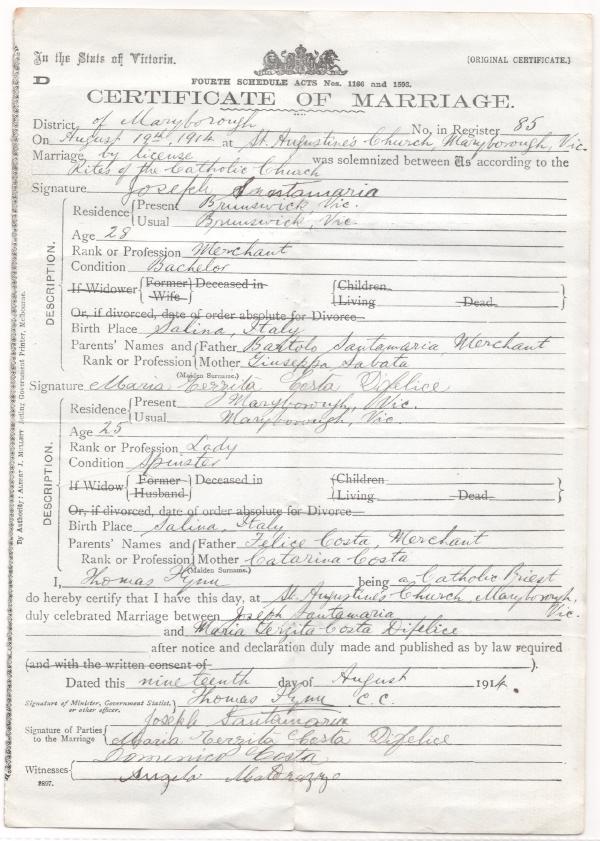 In the State of Victoria.
[ORIGINAL CERTIFICATE.]
D
FOURTH SCHEDULE ACTS Nos. 1166 and 1593.
CERTIFICATE OF MARRIAGE.
District of Maryborough No. in Register 85
On August 19th, 1914 at St. Augustine's Church, Maryborough, Vic.
Marriage by license was solemnized between Us according to the
Rites of the Catholic Church
Signature Joseph Santamaria
DESCRIPTION.
Residence Present Brunswick Vic.
Usual Brunswick, Vic.
Age 28
Rank or Profession Merchant
Condition Bachelor
If Widower Former Wife Deceased in Children Living Dead.
Or, if divorced, date of order absolute for Divorce
Birth Place Salina, Italy
Parents' Names and Father Bartolo Santamaria, Merchant
Rank or Profession Mother Giuseppa Sabata
(Maiden Surname.)
Signature Maria Terzita Costa Difelice
DESCRIPTION.
Residence Present Maryborough, Vic.
Usual Maryborough, Vic.
Age 25
Rank or Profession Lady
Condition Spinster
If Widow Former Husband Deceased in Children Living Dead.
Or, if divorced, date of order absolute for Divorce
Birth Place Salina, Italy
Parents' Names and Father Felice Costa, Merchant
Rank or Profession Mother Catarina Costa
(Maiden Surname.)
I, Thomas being a Catholic Priest
do hereby certify that I have this day, at St. Augustine's Church, Maryborough, Vic.
duly celebrated Marriage between Joseph Santamaria
and Maria Terzita Costa Difelice
after notice and declaration duly made and published as by law required
(and with the written consent of ).
Dated this nineteenth day of August 1914.
Signature of Minister, Government Statist, or other officer. Thomas C.C.
Signature of Parties to the Marriage Joseph Santamaria
Maria Terzita Costa Difelice
Witnesses Domenico Costa
Angelo
2897.
By Authority: ALBERT J. MULLETT Acting Government Printer, Melbourne.